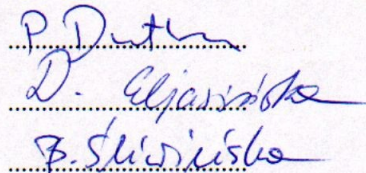 P. Dutka
D. Eljasińska
B. Śliwińska